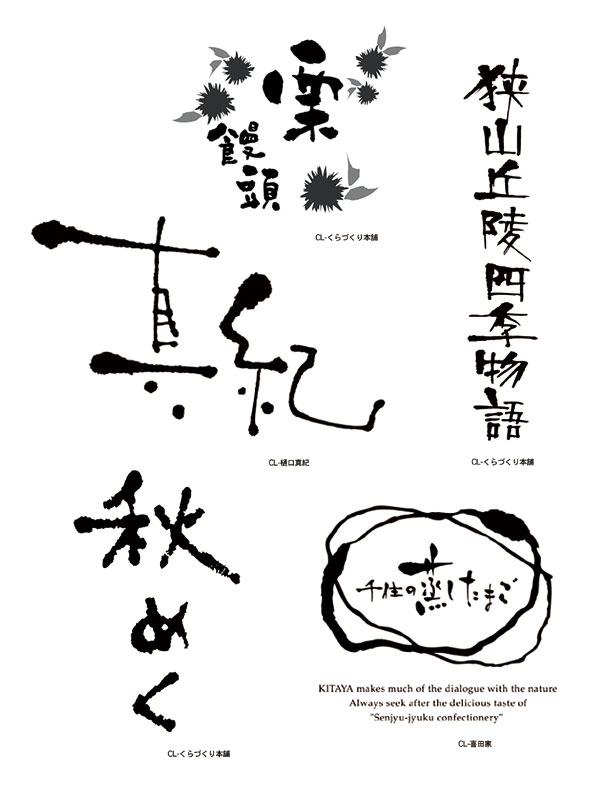 栗
饅頭
CL-くらづくり本舗
狭山丘陵四季物語
CL-くらづくり本舗
真紀
CL-樋口真紀
秋めく
CL-くらづくり本舗
千住の蒸したまご
KITAYA makes much of the dialogue with the nature
Always seek after the delicious taste of
"Senjyu-jyuku confectionery"
CL-喜田家